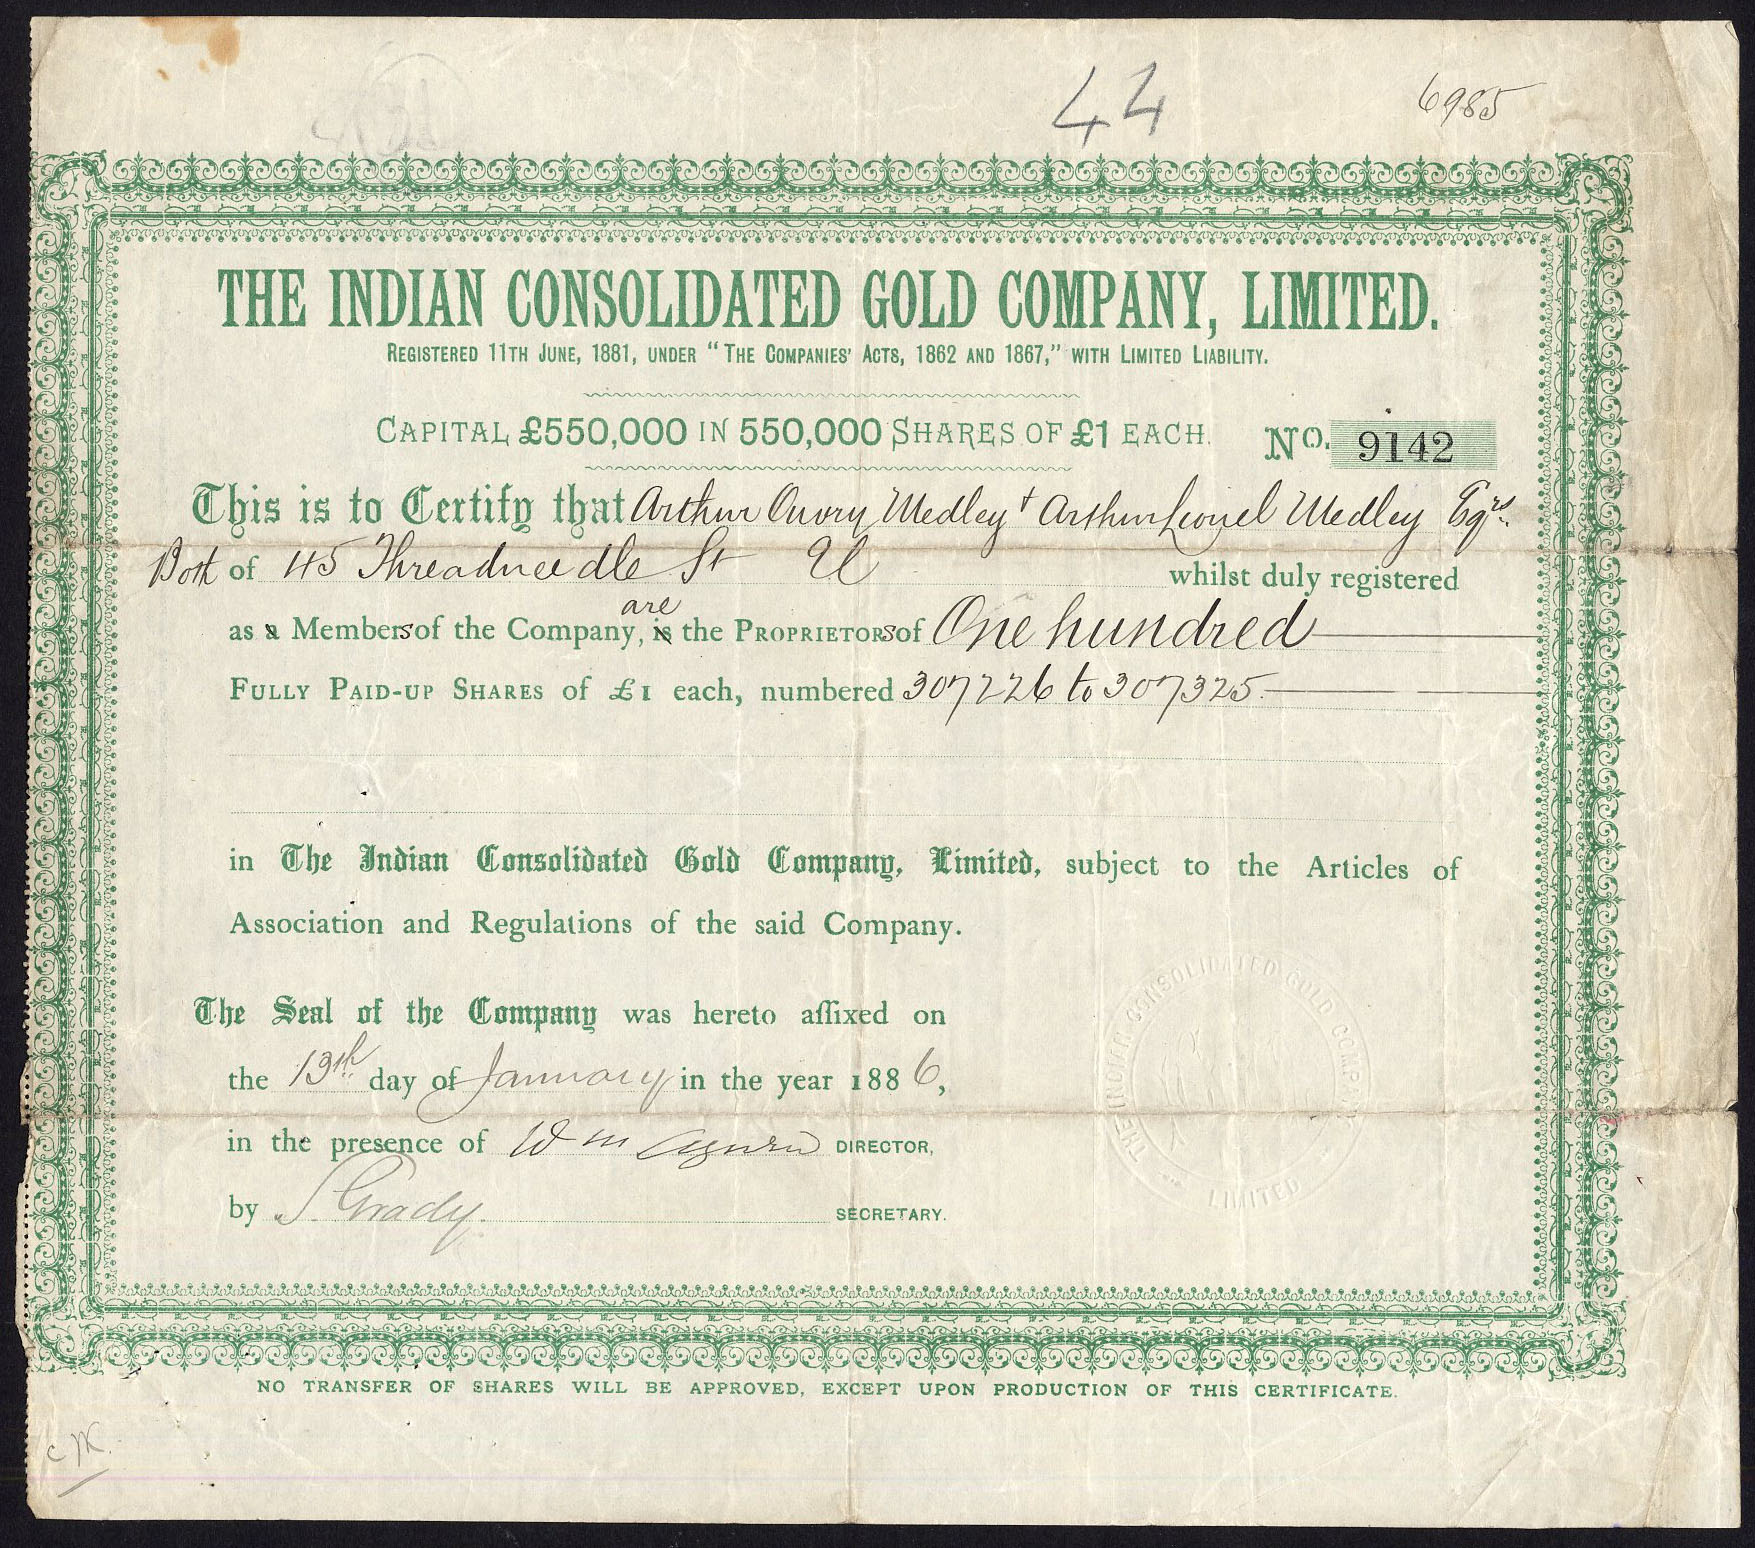 44
6985
THE INDIAN CONSOLIDATED GOLD COMPANY, LIMITED.
REGISTERED 11TH JUNE, 1881, UNDER "THE COMPANIES' ACTS, 1862 AND 1867," WITH LIMITED LIABILITY.
CAPITAL £550,000 IN 550,000 SHARES OF £1 EACH. No. 9142
This is to Certify that Arthur Ouvry Medley & Arthur Lionel Medley Esqrs.
Both of 45 Threadneedle St EC whilst duly registered
are
as a Members of the Company, is the PROPRIETORs of One hundred
FULLY PAID-UP SHARES of £1 each, numbered 307226 to 307325.
in The Indian Consolidated Gold Company, Limited, subject to the Articles of
Association and Regulations of the said Company.
The Seal of the Company was hereto affixed on
the 13th day of January in the year 1886,
in the presence of Wm DIRECTOR,
by S. Grady. SECRETARY.
THE INDIAN CONSOLIDATED GOLD COMPANY
LIMITED
NO TRANSFER OF SHARES WILL BE APPROVED, EXCEPT UPON PRODUCTION OF THIS CERTIFICATE.